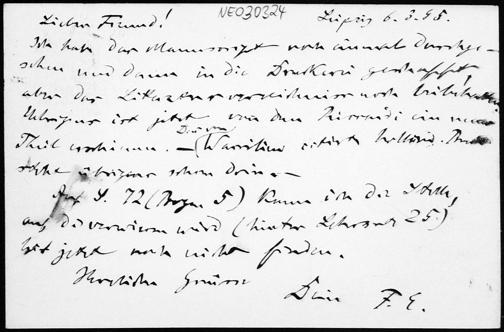 NEO30324
Lieber Freund! Leipzig 6.3.95.
Ich habe das Manuscript noch einmal durchge-
sehen und dann in die Druckerei geschafft,
aber das Litteraturverzeichniss noch
Übrigens ist jetzt von dem Riccardi ein neuer
Theil erschienen. — citirt holländ.
übrigens schon drin —
Auf S. 72 (Bogen 5) kann ich die Stelle,
auf die verwiesen wird (hinter Lehrsatz 25)
bis jetzt noch nicht finden.
Herzliche Grüsse
Dein F. E.